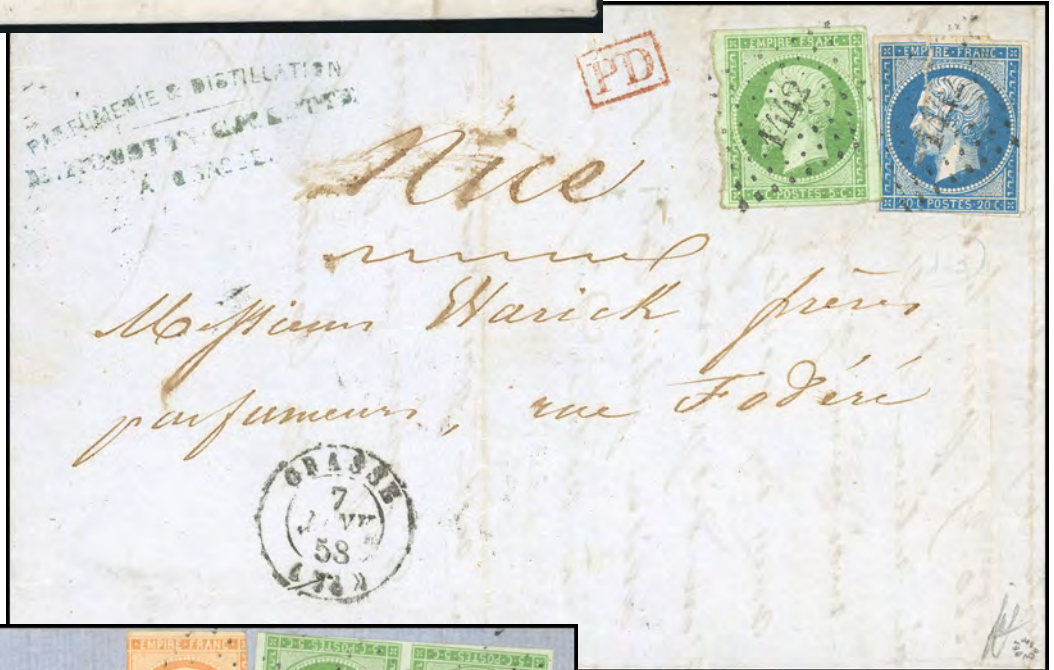 PARFUMERIE & DISTILLATION
A GRASSE.
PD
EMPIRE·FRANC·
1442
5 C·POSTES·5 C·
EMPIRE·FRANC·
20 C·POSTES·20 C·
Nice
Messieurs Warick frères
parfumeurs, rue Fodéré
GRASSE
7
JANV
58
EMPIRE·FRANC·
5·C·POSTES·5·C·
5·C·POSTES·5·C·